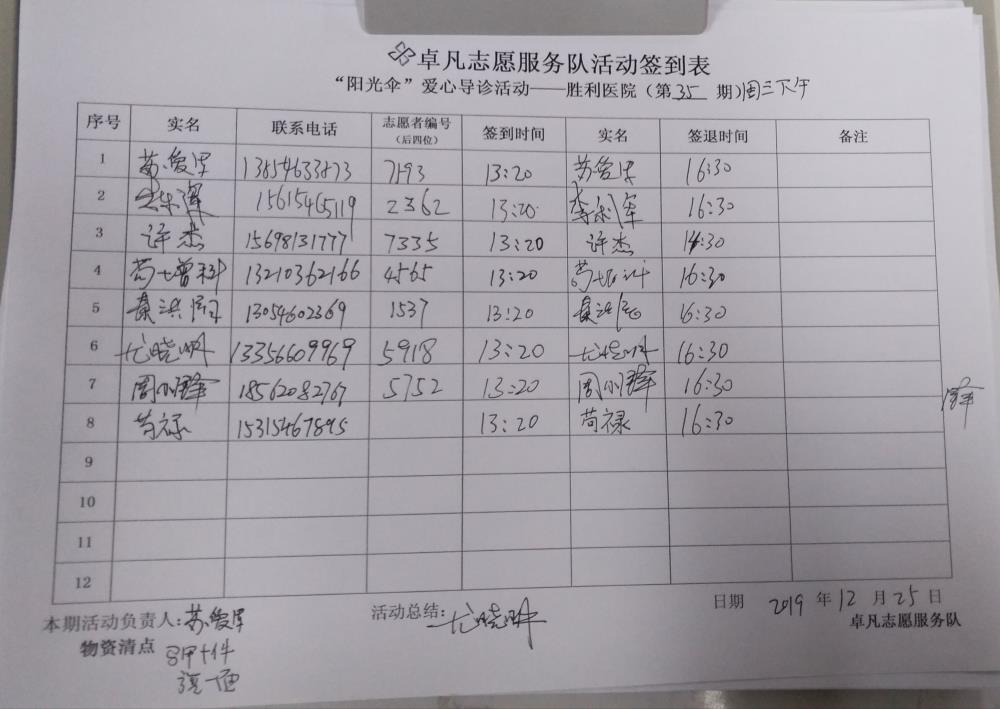 卓凡志愿服务队活动签到表
“阳光伞”爱心导诊活动——胜利医院（第35期）周三下午
序号 实名 联系电话 志愿者编号（后四位） 签到时间 实名 签退时间 备注
1 苏爱军 13854633873 7193 13:20 苏爱军 16:30
2 15615465119 2362 13:20 16:30
3 许杰 15698131777 7335 13:20 许杰 16:30
4 13210362166 4565 13:20 16:30
5 13054602369 1537 13:20 16:30
6 尤晓明 13356609969 5918 13:20 尤晓明 16:30
7 18562082767 5752 13:20 16:30
8 苟禄 15315467895 13:20 苟禄 16:30
9
10
11
12
本期活动负责人：苏爱军 活动总结：尤晓明 日期 2019年12月25日
物资清点 马甲十件 卓凡志愿服务队